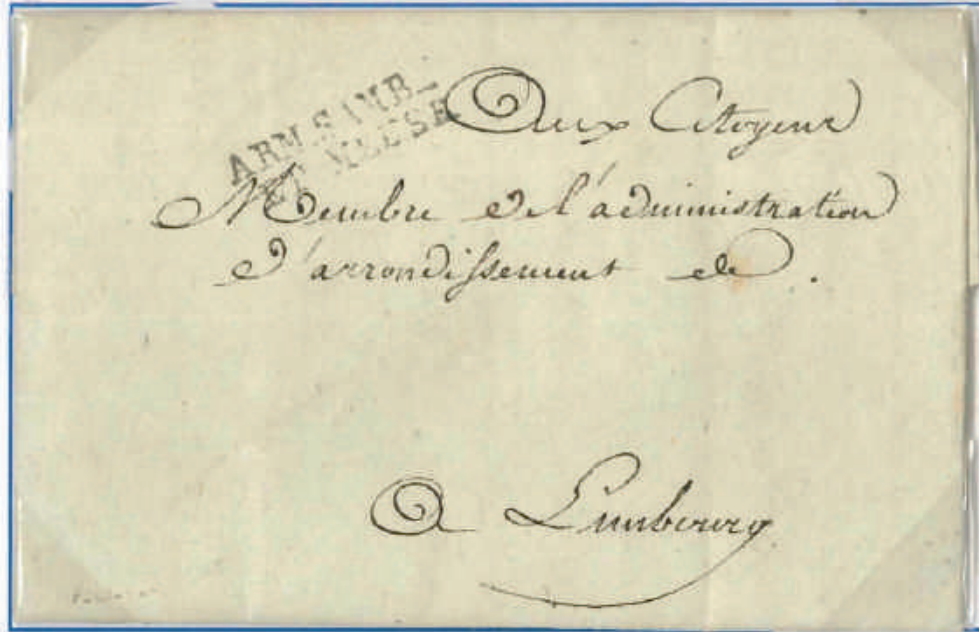 ARM. SAMB_
ET MEUSE
Aux Citoyens
Membre de l'administration
d'arrondissement de .
A Limbourg